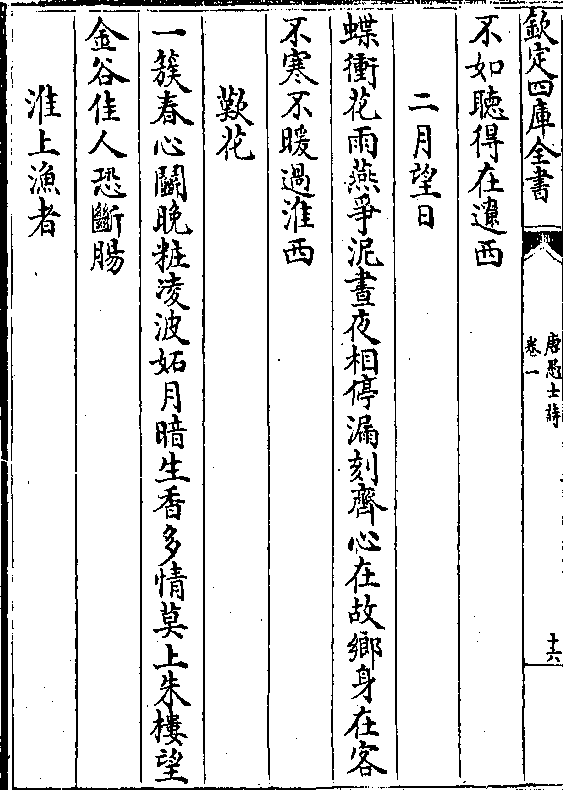 欽定四庫全書
唐愚士詩
卷一
十六
不如聽得在遼西
二月望日
蝶衝花雨燕爭泥晝夜相停漏刻齊心在故鄉身在客
不寒不暖過淮西
歎花
一簇春心鬬晚粧凌波妬月暗生香多情莫上朱樓望
金谷佳人恐斷腸
淮上漁者